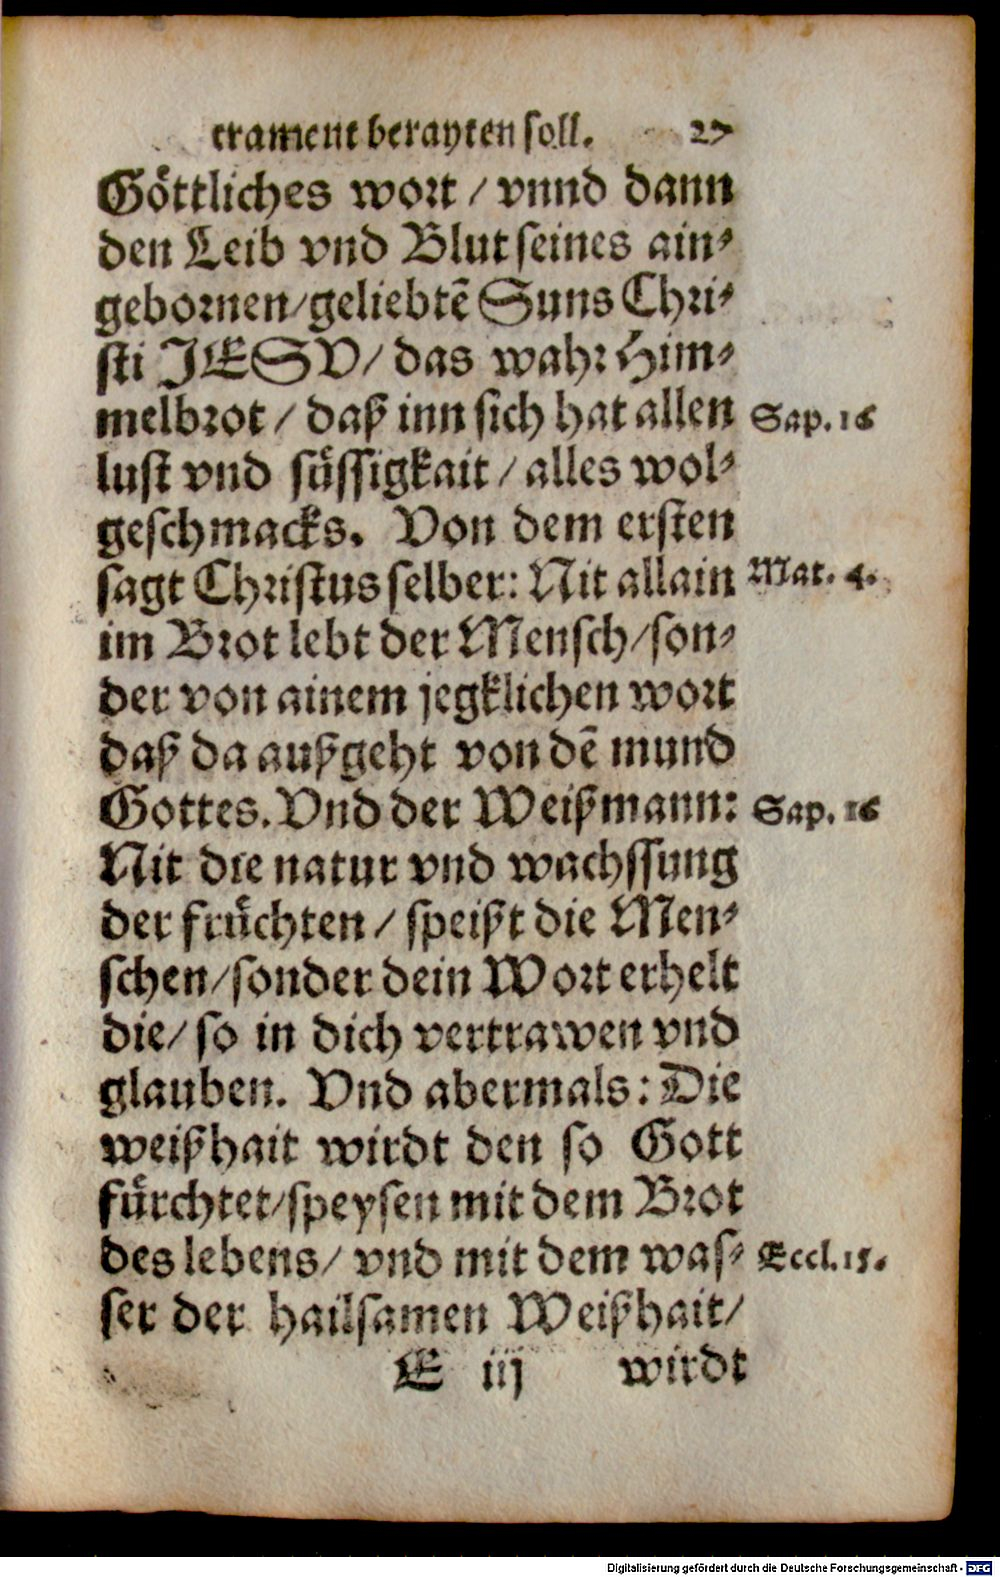 crament berayten soll. 27
Göttliches wort / vnnd dann
den Leib vnd Blut seines ain⸗
gebornen/geliebtē Suns Chri⸗
sti JESV/ das wahr Him⸗
melbrot / daß inn sich hat allen Sap. 16
lust vnd süssigkait / alles wol⸗
geschmacks. Von dem ersten
sagt Christus selber: Nit allain Mat. 4.
im Brot lebt der Mensch/son⸗
der von ainem jegklichen wort
daß da außgeht von dē mund
Gottes. Vnd der Weißmann: Sap. 16
Nit die natur vnd wachssung
der früchten / speißt die Men⸗
schen/sonder dein Wort erhelt
die/ so in dich vertrawen vnd
glauben. Vnd abermals: Die
weißhait wirdt den so Gott
fürchtet/speysen mit dem Brot
des lebens/ vnd mit dem was⸗ Eccl. 15.
ser der hailsamen Weißhait/
E iij wirdt
Digitalisierung gefördert durch die Deutsche Forschungsgemeinschaft - DFG